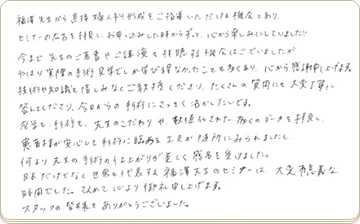 福澤先生から直接婦人科形成をご指導いただける機会であり、
セミナーの広告を拝見し、お申し込みした時からずっと、心から楽しみにしていました!!
今まで先生のご著書やご講演を拝聴する機会はございましたが
やはり実際の手術見学でしか学び得なかったことも多くあり、心から感謝申し上げます。
技術や知識を惜しみなくご教授くださり、たくさんの質問にも大変丁寧に
答えてくださり、今日からの料術にさっそく活かしたいです。
麻酔も、手術も、先生のこだわりや、数値化された多くのデータを拝見し、
患者様が安心して手術に臨める工夫が随所にみられました。
何より先生の手術の仕上がりが美しく感名を受けました。
日本だけでなく世界を代表する福澤先生のセミナーは、大変有意義な
時間でした。改めて心より御礼申し上げます。
スタッフの皆様もありがとうございました。